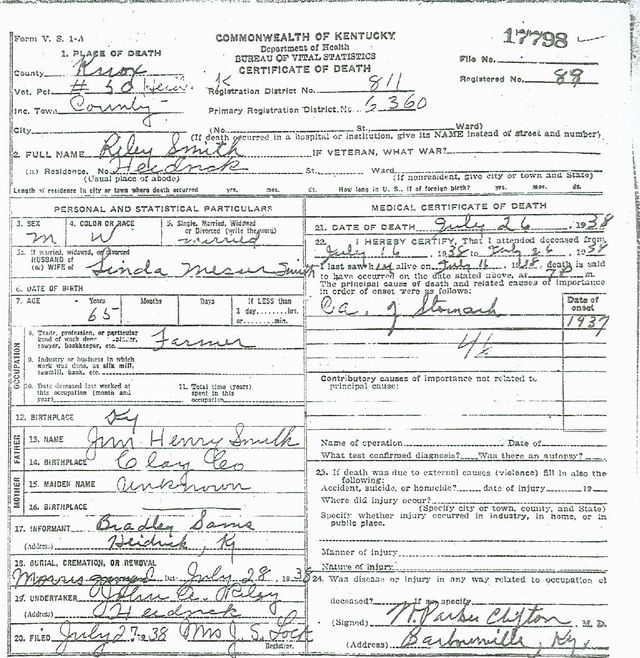 Form V. S. 1-A
COMMONWEALTH OF KENTUCKY
Department of Health
BUREAU OF VITAL STATISTICS
CERTIFICATE OF DEATH
17798
File No.
Registered No. 89
1. PLACE OF DEATH
County Knox
Vot. Pct # 30
Inc. Town County
City
Registration District No. 811
Primary Registration District No. 6360
(No. St., Ward)
(If death occurred in a hospital or institution, give its NAME instead of street and number)
2. FULL NAME Riley Smith IF VETERAN, WHAT WAR?
(a) Residence, No. Heidrick St. Ward
(Usual place of abode) (If nonresident, give city or town and State)
Length of residence in city or town where death occurred yrs. mos. ds. How long in U. S., if of foreign birth? yrs. mos. ds.
PERSONAL AND STATISTICAL PARTICULARS
3. SEX M
4. COLOR OR RACE W
5. Single, Married, Widowed or Divorced (write the word) married
5a. If married, widowed, or divorced
HUSBAND of
(or) WIFE of Sinda Smith
6. DATE OF BIRTH
7. AGE Years 65 Months Days If LESS than
1 day, hrs.
or min.
OCCUPATION
8. Trade, profession, or particular
kind of work done, spinner,
sawyer, bookkeeper, etc. Farmer
9. Industry or business in which
work was done, as silk mill,
sawmill, bank, etc.
10. Date deceased last worked at
this occupation (month and
year)
11. Total time (years)
spent in this
occupation
12. BIRTHPLACE Ky
FATHER
13. NAME Jim Henry Smith
14. BIRTHPLACE Clay Co
MOTHER
15. MAIDEN NAME Unknown
16. BIRTHPLACE
17. INFORMANT Bradley Sams
(Address) Heidrick, Ky
18. BURIAL, CREMATION, OR REMOVAL
Morris Date July 28 1938
19. UNDERTAKER John Riley
(Address) Heidrick
20. FILED July 27 1938 Mrs J. S. Lock
Registrar.
MEDICAL CERTIFICATE OF DEATH
21. DATE OF DEATH July 26, 1938
22. I HEREBY CERTIFY, That I attended deceased from
July 16, 1938 to July 26, 1938
I last saw him alive on July 16 1938, death is said
to have occurred on the date stated above, at m.
The principal cause of death and related causes of importance
in order of onset were as follows:
Date of
onset
Ca. of Stomach 1937
46
Contributory causes of importance not related to
principal cause:
Name of operation Date of
What test confirmed diagnosis? Was there an autopsy?
23. If death was due to external causes (violence) fill in also the
following:
Accident, suicide, or homicide? date of injury 19
Where did injury occur?
(Specify city or town, county, and State)
Specify whether injury occurred in industry, in home, or in
public place.
Manner of injury
Nature of injury
24. Was disease or injury in any way related to occupation of
deceased? If so, specify
(Signed) W. Parker Clifton, M. D.
(Address) Barbourville, Ky.